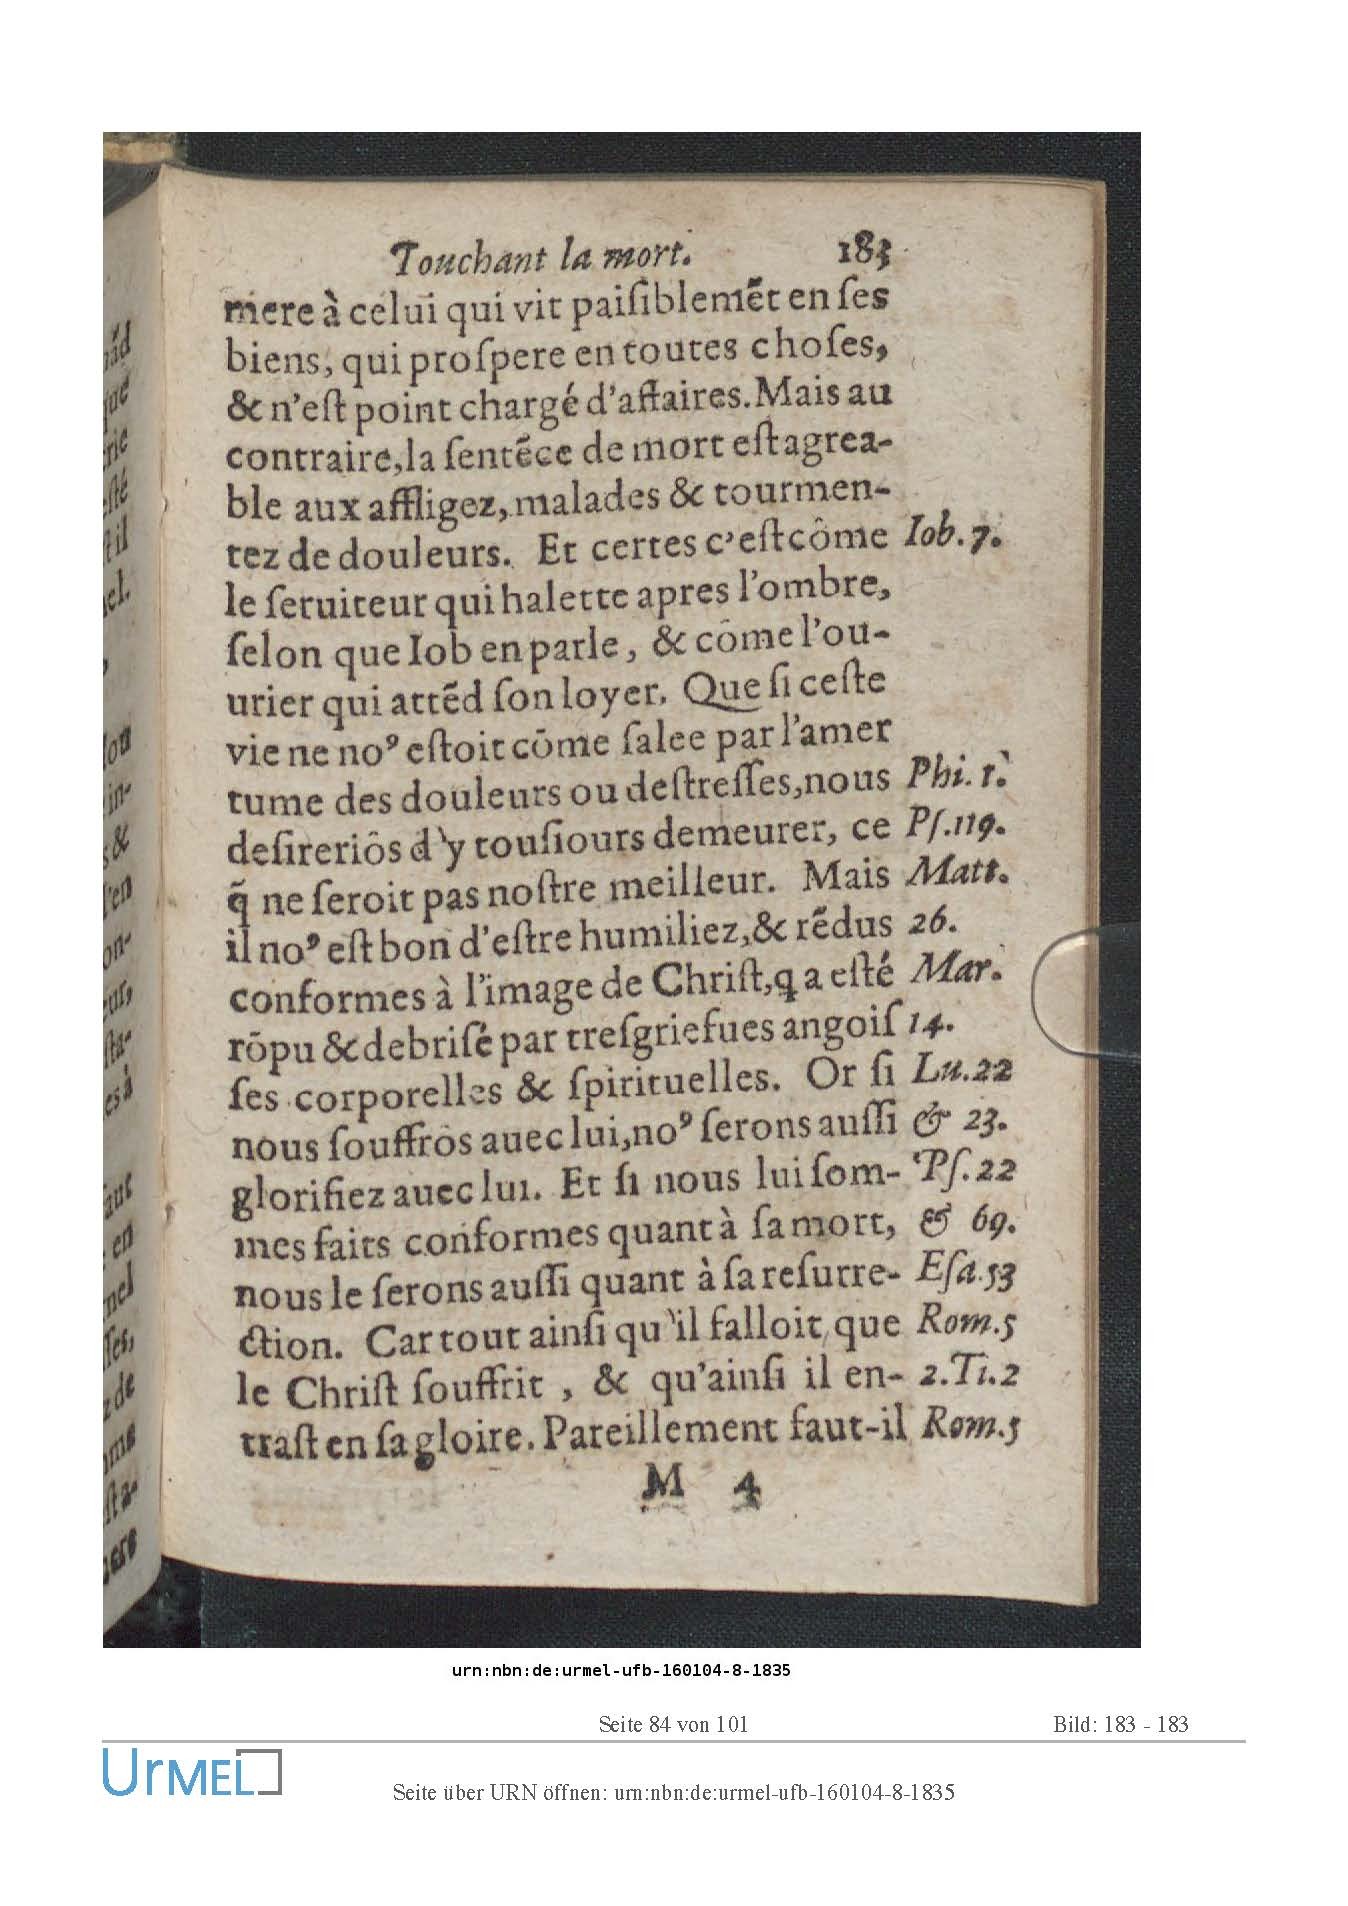 Touchant la mort. 183
mere à celui qui vit paiſiblemẽt en ſes
biens, qui proſpere en toutes choſes,
& n'eſt point chargé d'affaires. Mais au
contraire, la ſentẽce de mort eſt agrea-
ble aux affligez, malades & tourmen-
tez de douleurs. Et certes c'eſt cõme Iob. 7.
le ſeruiteur qui halette apres l'ombre,
ſelon que Iob en parle, & cõme l'ou-
urier qui attẽd ſon loyer. Que ſi ceſte
vie ne noꝰ eſtoit cõme ſalee par l'amer
tume des douleurs ou deſtreſſes, nous Phi. 1.
deſireriõs d'y touſiours demeurer, ce Pſ. 119.
q̃ ne ſeroit pas noſtre meilleur. Mais Matt.
il noꝰ eſt bon d'eſtre humiliez, & rẽdus 26.
conformes à l'image de Chriſt, q a eſté Mar.
rõpu & debriſé par treſgriefues angoiſ 14.
ſes corporelles & ſpirituelles. Or ſi Lu. 22
nous ſouffrõs auec lui, noꝰ ſerons auſſi & 23.
glorifiez auec lui. Et ſi nous lui ſom- Pſ. 22
mes faits conformes quant à ſa mort, & 69.
nous le ſerons auſſi quant à ſa reſurre- Eſa. 53
ction. Car tout ainſi qu'il falloit que Rom. 5
le Chriſt ſouffrit, & qu'ainſi il en- 2. Ti. 2
traſt en ſa gloire. Pareillement faut-il Rom. 5
M 4
urn:nbn:de:urmel-ufb-160104-8-1835
Seite 84 von 101 Bild: 183 - 183
UrMEL
Seite über URN öffnen: urn:nbn:de:urmel-ufb-160104-8-1835